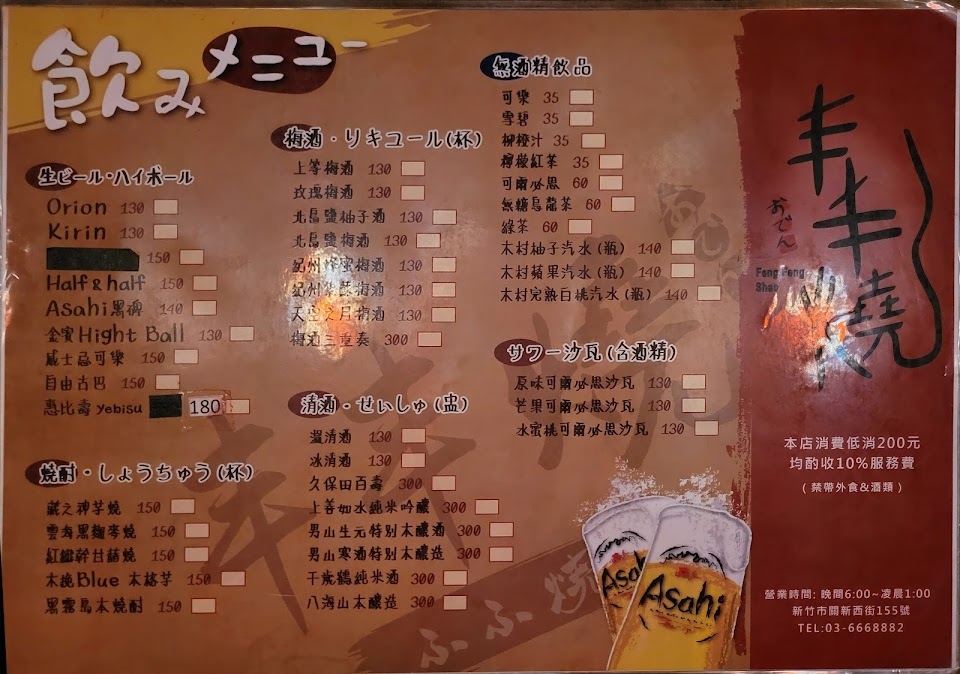 飲み メニュー
生ビール・ハイボール
Orion 130
Kirin 130
150
Half & half 150
Asahi黑啤 140
金賓Hight Ball 130
威士忌可樂 150
自由古巴 150
惠比壽 Yebisu 180
燒酎・しょうちゅう(杯)
藏之神芋燒 150
雲海黑麴麥燒 150
紅 甘藷燒 150
木挽Blue 本格芋 150
黑霧島本燒酎 150
梅酒・リキュール(杯)
上等梅酒 130
玫瑰梅酒 130
北島鹽柚子酒 130
北島鹽梅酒 130
紀州蜂蜜梅酒 130
紀州 梅酒 130
天空之月梅酒 130
梅酒三重奏 300
清酒・せいしゅ(盅)
溫清酒 130
冰清酒 130
久保田百壽 300
上善如水純米吟釀 300
男山生元特別本釀酒 300
男山寒酒特別本釀造 300
千歲鶴純米酒 300
八海山本釀造 300
無酒精飲品
可樂 35
雪碧 35
柳橙汁 35
檸檬紅茶 35
可爾必思 60
無糖烏龍茶 60
綠茶 60
木村柚子汽水(瓶) 140
木村蘋果汽水(瓶) 140
木村完熟白桃汽水(瓶) 140
サワー沙瓦(含酒精)
原味可爾必思沙瓦 130
芒果可爾必思沙瓦 130
水蜜桃可爾必思沙瓦 130
ふふ燒
Asahi
Asahi
丰丰燒
おでん
Feng Feng
Shao
本店消費低消200元
均酌收10%服務費
(禁帶外食&酒類)
營業時間: 晚間6:00~凌晨1:00
新竹市關新西街155號
TEL:03-6668882